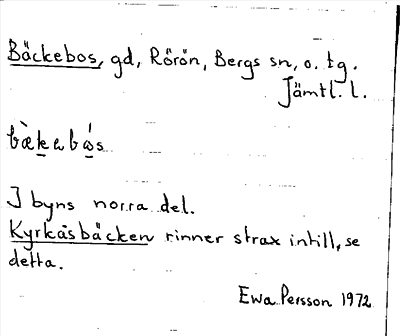 Bäckebos, gd, Rörön, Bergs sn, o. tg.
Jämtl. l.
I byns norra del.
Kyrkåsbäcken rinner strax intill, se
detta.
Ewa Persson 1972